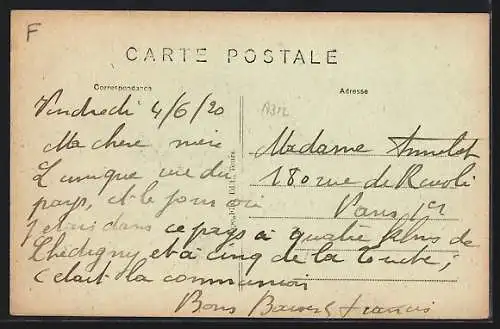 F
CARTE POSTALE
Correspondance
Adresse
Vendredi 4/6/20
Ma chere mère
L'unique vue du
pays, et le jour où
j'etais dans ce pays à quatre klms de
Chédigny et à cinq de la
c'etait la communion
Bons Baisers Francis
Madame
180 rue de Rivoli
Paris 1er